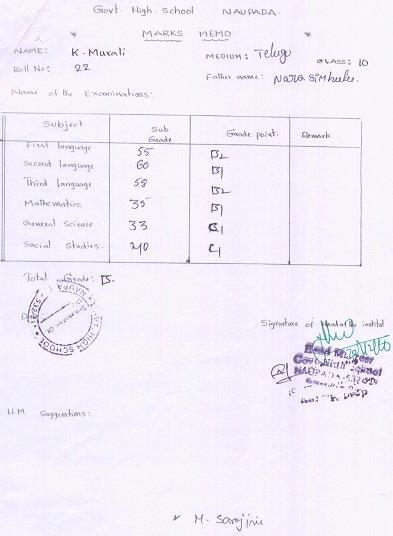 Govt. High. School NAUPADA.
MARKS MEMO
NAME: K. Murali MEDIUM: Telugu CLASS: 10
Roll No: 22 Father name:
Name of the Examinations:
Subject Sub Grade Grade point. Remark
First language 55 B2
Second language 60 B1
Third language 58 B2
Mathematics 35 B1
General Science 33 C1
Social Studies. 40 C1
Total Grade: B.
Signature of Head of the institut
Head Master
Govt High School
NAUPADA-532
H.M Suggestions:
M. Sarojini